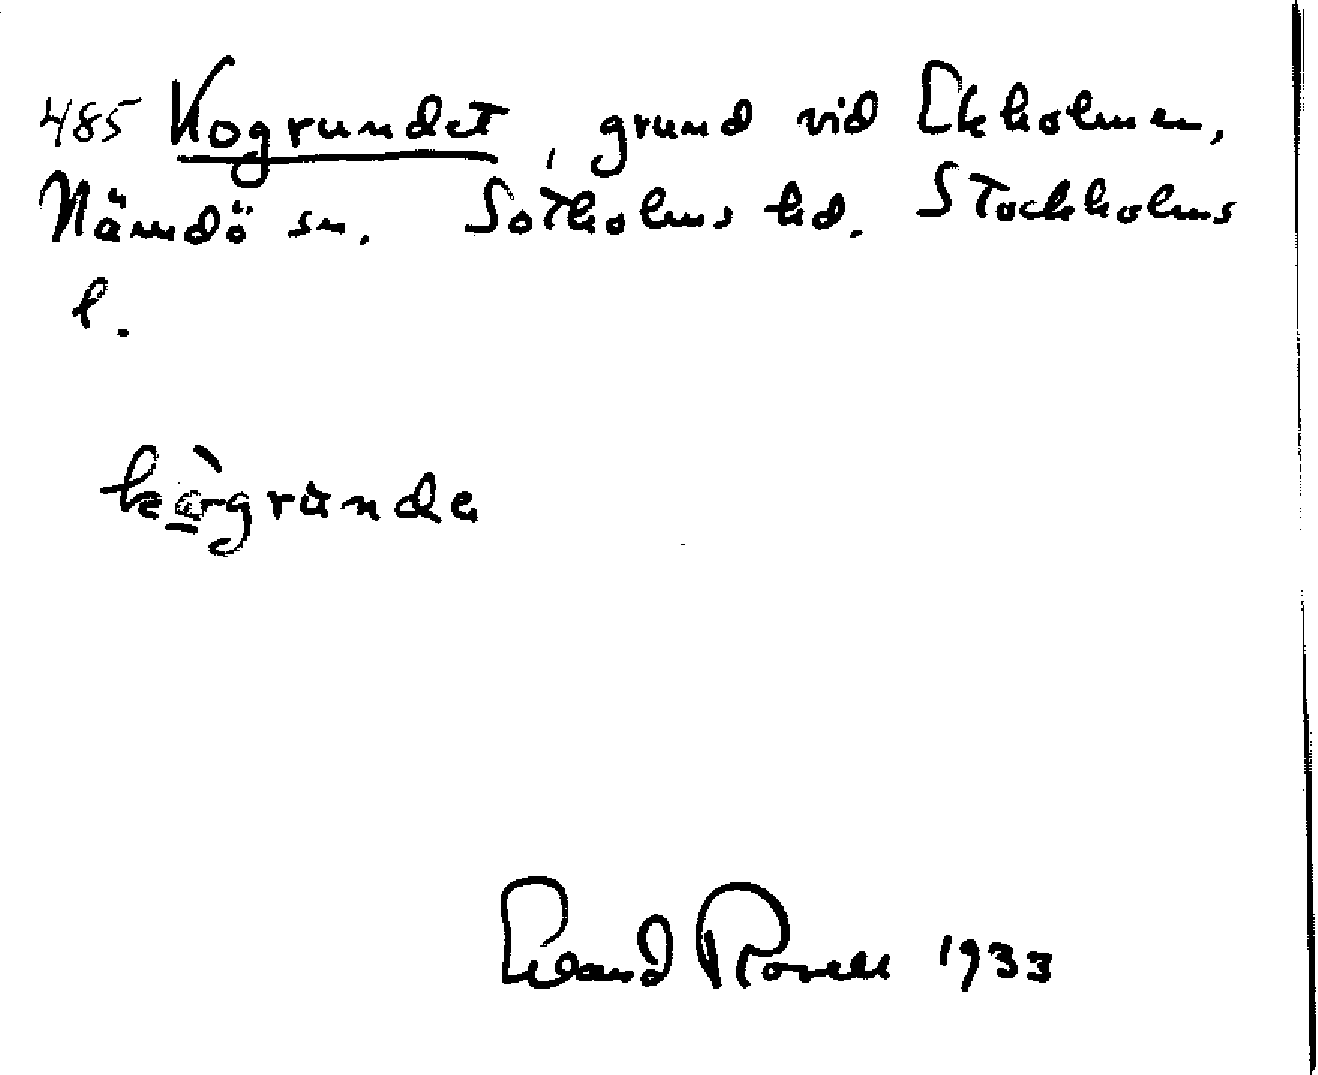 485 Kogrundet, grund vid Ekholmen,
Nämdö sn. Sotholms hd. Stockholms
l.
kògrunde
1933